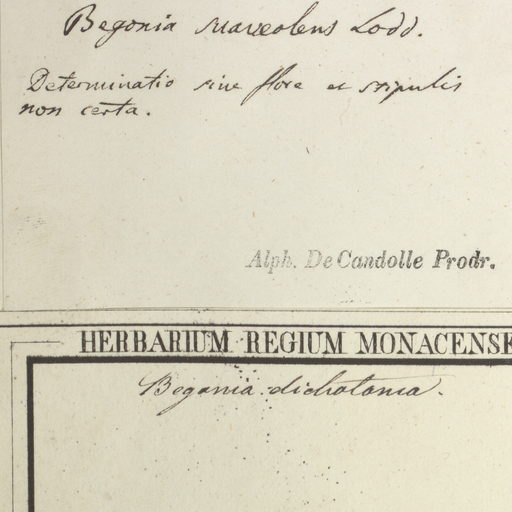 Begonia suaveolens Lodd.
Determinatio sine flore et stipulis
non certa.
Alph. De Candolle Prodr.
HERBARIUM REGIUM MONACENSE
Begonia dichotoma.